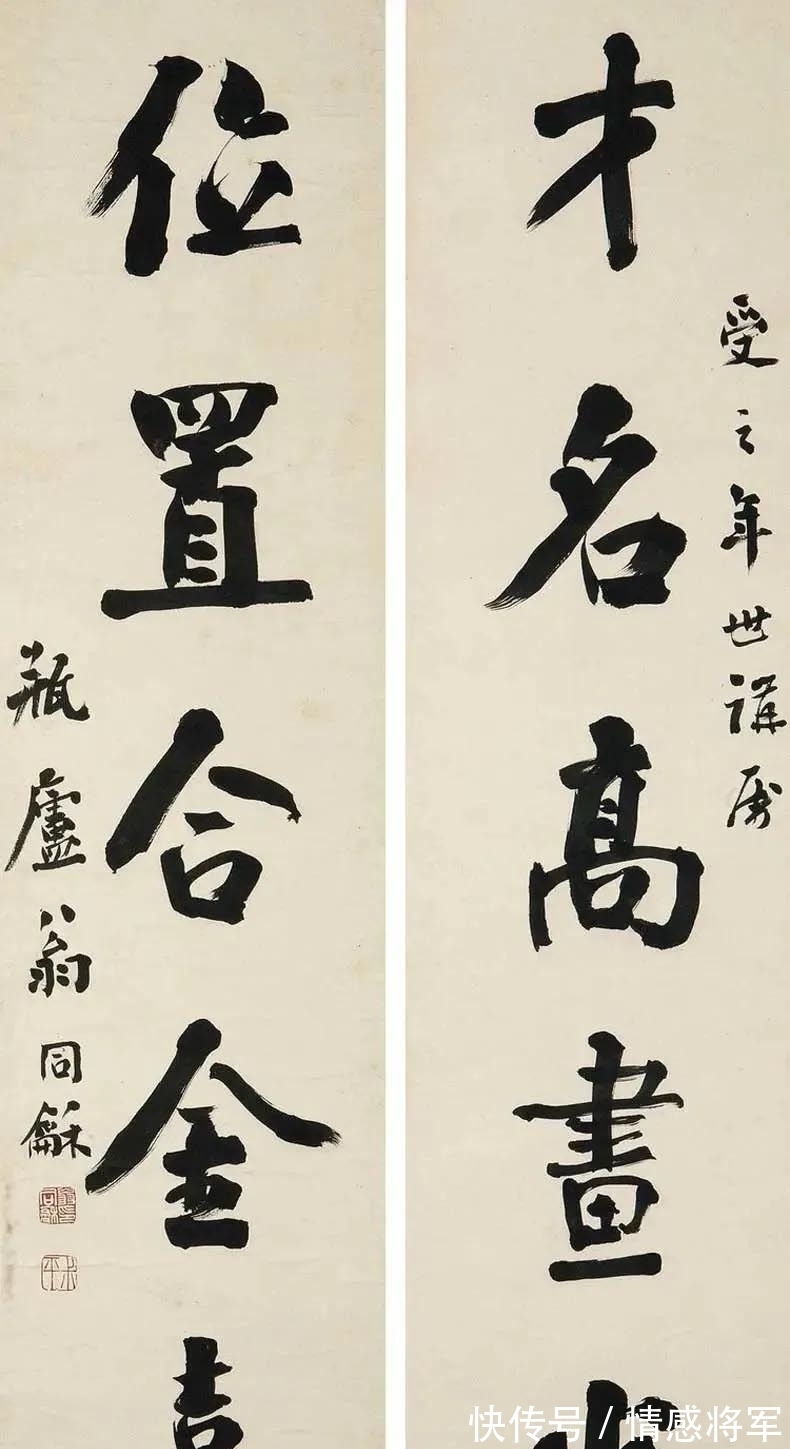 受之年世講屬
才名高畫
位置合金
瓶廬翁同龢
翁同龢印
叔平
快传号 / 情感将军